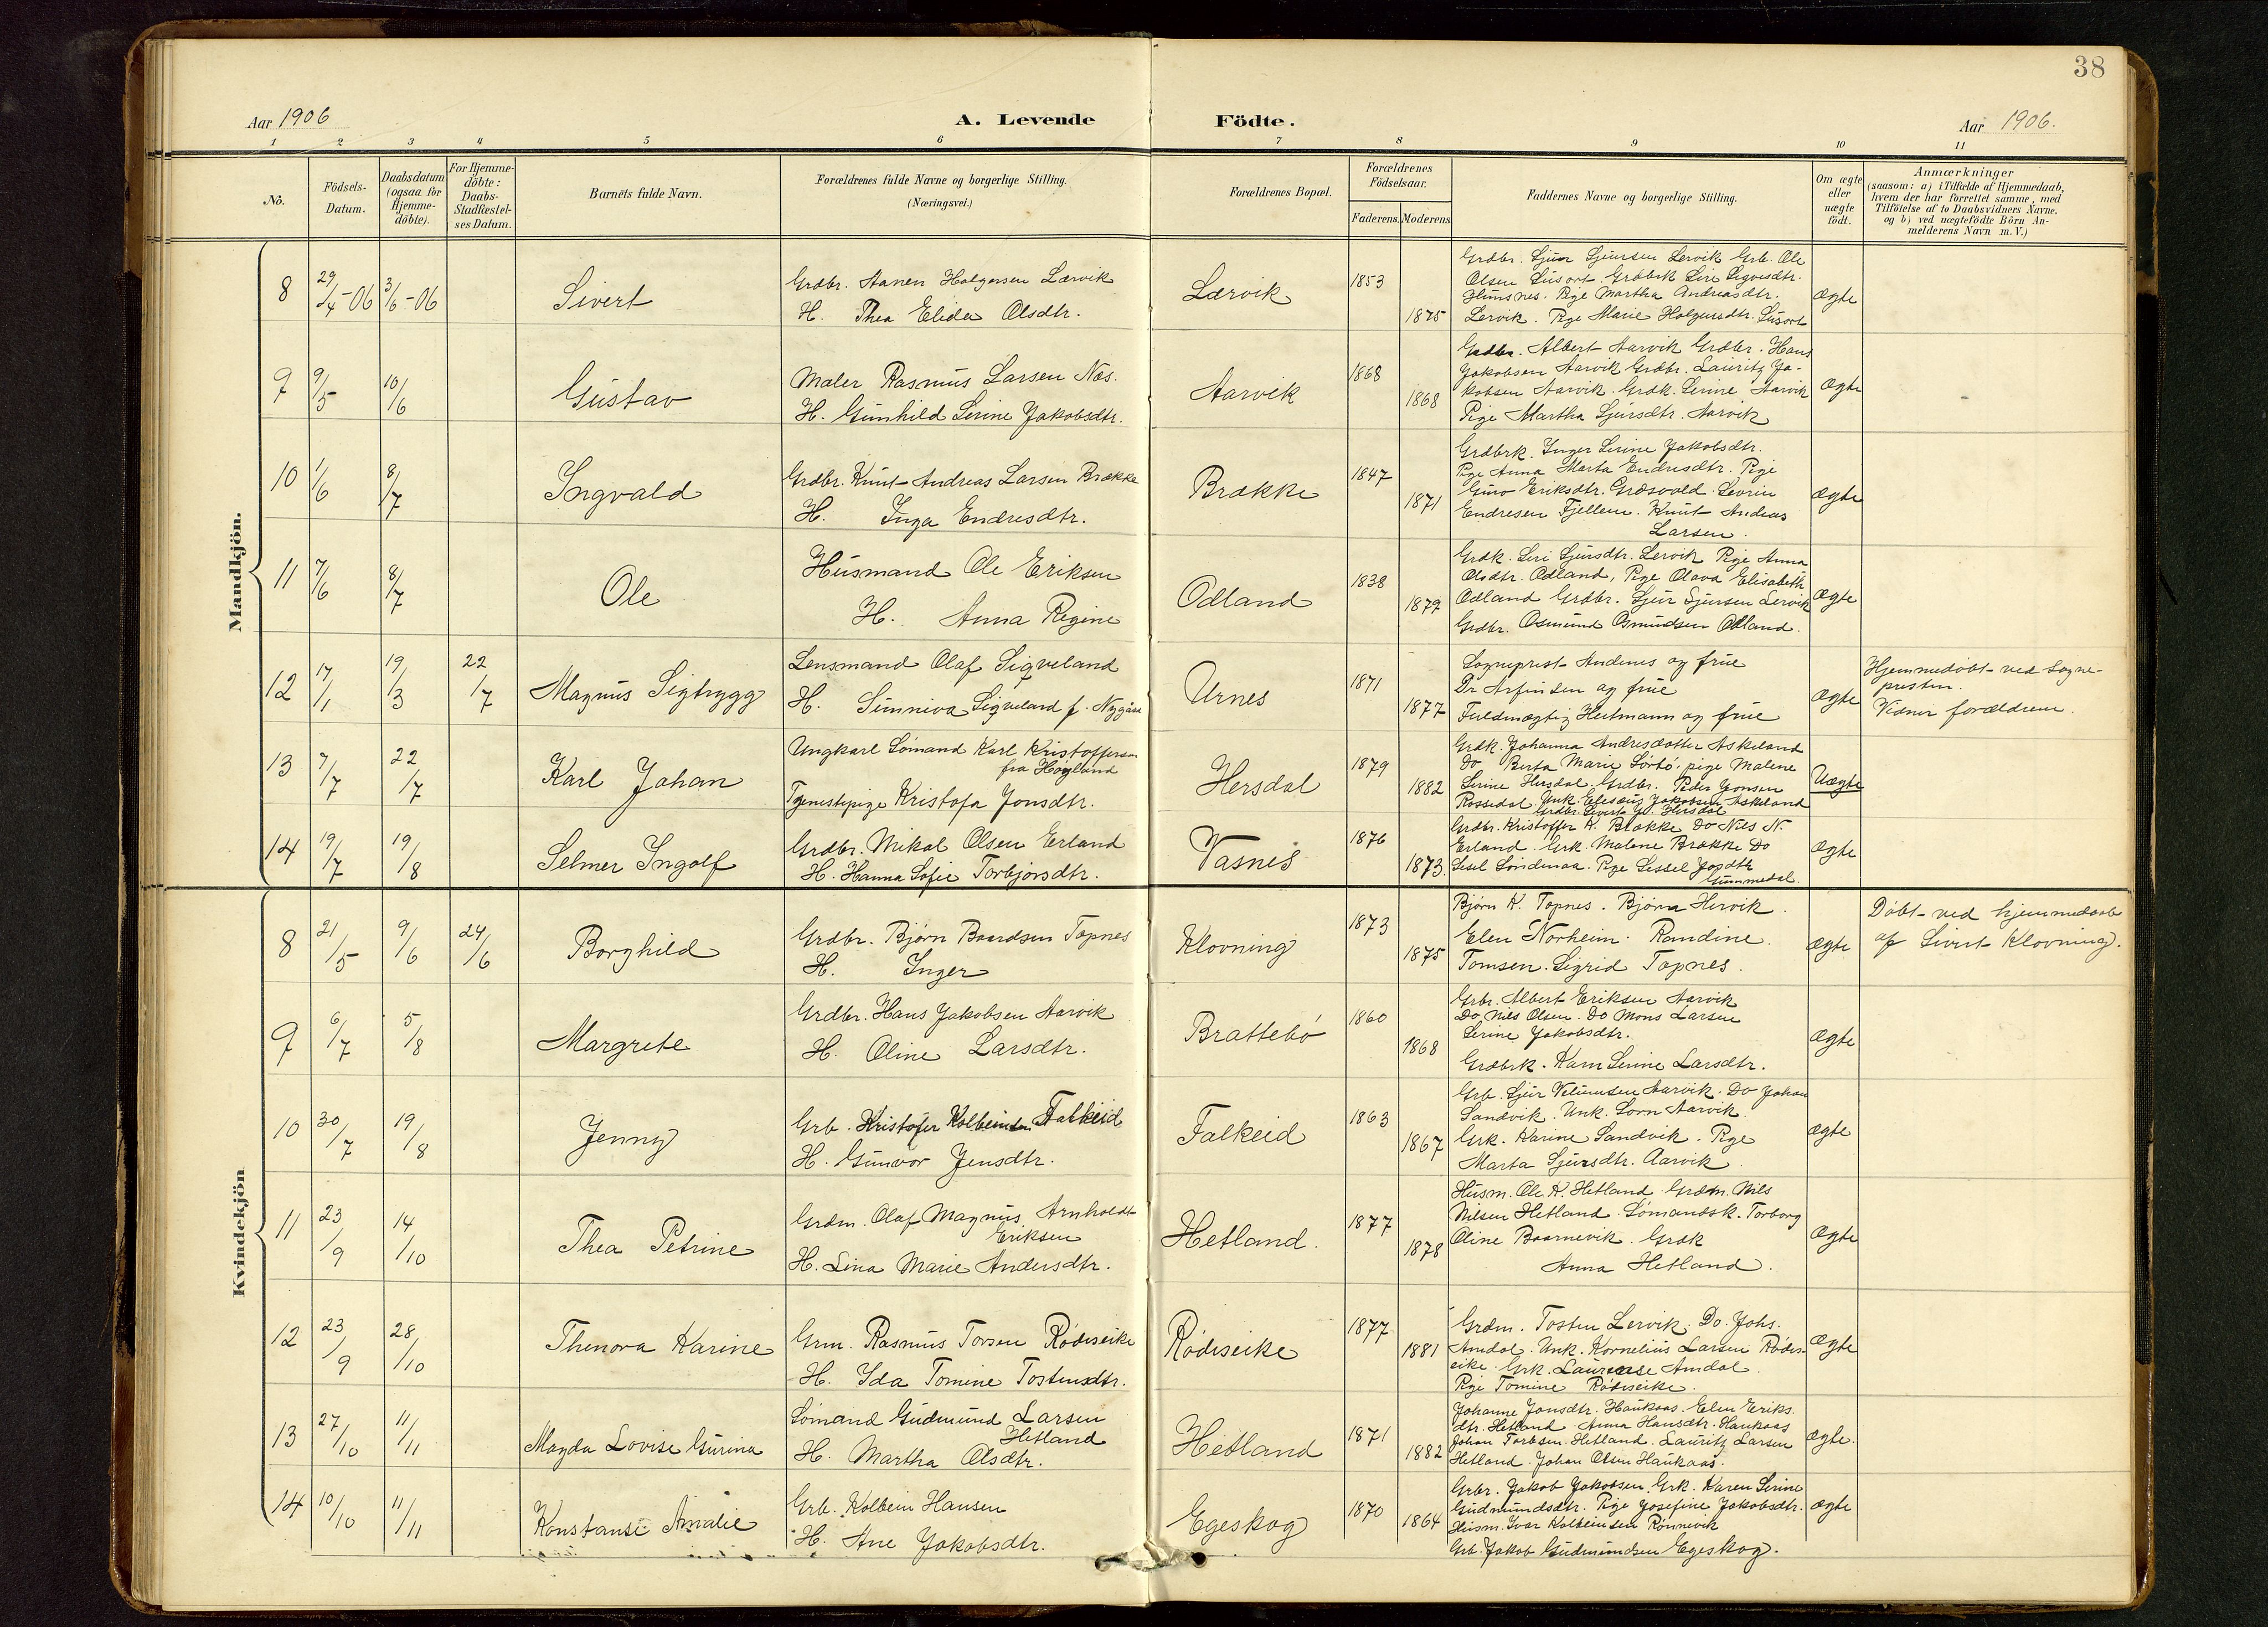 38
Aar 1906
A. Levende Födte.
Aar 1906.
1 2 3 4 5 6 7 8 9 10 11
No.
Födsels-
Datum.
Daabsdatum
(ogsaa for
Hjemme-
döbte).
For Hjemme-
döbte:
Daabs-
Stadfæstel-
ses Datum.
Barnets fulde Navn.
Forældrenes fulde Navne og borgerlige Stilling.
(Næringsvei.)
Forældrenes Bopæl.
Forældrenes
Födselsaar.
Faderens. Moderens.
Faddernes Navne og borgerlige Stilling.
Om ægte
eller
uægte
födt.
Anmærkninger
(saasom: a) i Tilfælde af Hjemmedaab,
hvem der har forrettet samme, med
Tilföielse af to Daabsvidners Navne.
og b) ved uægtefödte Börn An-
melderens Navn m.V.)
Mandkjön.
8 29/4-06 3/6-06 Sivert
Grdbr. Aanen Holgersen Lærvik
H. Thea Elida Olsdtr.
Lærvik 1853 1875
Grdbr. Sjur Sjursen Lervik Grb. Ole
Olsen Susort. Grdbrk Siri Sigvesdtr.
Hunsnes. Pige Martha Andreasdtr.
Lervik. Pige Marie Holgersdtr. Susort
Ægte
9 9/5 10/6 Gustav
Maler Rasmus Larsen Næs.
H. Gunhild Serine Jakobsdtr.
Aarvik 1868 1868
Grdbr. Albert Aarvik Grdbr. Hans
Jakobsen Aarvik Grdbr. Lauritz Ja-
kobsen Aarvik. Grdk. Serine Aarvik
Pige Martha Sjursdtr. Aarvik
Ægte
10 1/6 8/7 Ingvald
Grdbr. Knut Andreas Larsen Brække
H. Inga Endresdtr.
Brække 1847 1871
Grdbrk. Inger Serine Jakobsdtr.
Pige Anna Marta Endresdtr. Pige
Guro Eriksdtr. Græsvold. Sevrin
Endresen Fjellem. Knut Andreas
Larsen.
Ægte
11 7/6 8/7 Ole
Husmand Ole Eriksen
H. Anna Regine
Odland 1838 1879
Grdk. Siri Sjursdtr. Lervik Pige Anna
Olsdtr. Odland, Pige Olava Elisabeth
Odland Grdbr. Sjur Sjursen Lervik
Grdbr. Osmund Osmundsen Odland.
Ægte
12 17/1 19/3 22/7 Magnus Sigtrygg
Lensmand Olaf Sigveland
H. Sunniva Sigveland f. Nygård
Urnes 1871 1877
Sogneprest Andenes og frue
Dr Arfinsen og frue
Fuldmægtig Hertmann og frue
Ægte
Hjemmedøbt ved Sogne-
presten.
Vidner forældrene.
13 7/7 22/7 Karl Johan
Ungkarl Sømand Karl Kristoffersen
fra Høgland
Tjenestepige Kristofa Jonsdtr.
Hersdal 1879 1882
Grdk. Johanna Andresdotter Askeland
Do Berta Marie Sørbø. pige Malene
Serine Hersdal Grdbr. Peder Jonsen
Rossedal. Unk. Elesæus Jakobsen Askeland
Grdbr. Sivert Jo. Hersdal
Uægte
14 19/7 19/8 Selmer Ingolf
Grdbr. Mikal Olsen Erland
H. Hanna Sofie Torbjørsdtr.
Vasnes 1876 1873.
Grdbr. Kristoffer K. Brække Do Nils N.
Erland. Grk. Malene Brække Do
Sesel Søndenaa. Pige Sessel Jondtr.
Gummedal.
Ægte
Kvindekjön
8 21/5 9/6 24/6 Borghild
Grdbr. Bjørn Baardsen Topnes
H. Inger
Klovning 1873 1875
Bjørn K. Topnes. Bjørn Hervik.
Elen Norheim. Randine.
Tomsen. Sigrid Topnes.
Ægte
Døbt ved hjemmedaab
af Sivert Klovning.
9 6/7 5/8 Margrete
Grdbr. Hans Jakobsen Aarvik
H. Oline Larsdtr.
Brattebø 1860 1868
Grbr. Albert Eriksen Aarvik
Do Nils Olsen. Do Mons Larsen
Serine Jakobsdtr.
Grdbrk. Karn Serine Larsdtr.
Ægte
10 30/7 19/8 Jenny
Grb. Kristofer Kolbeinsen Falkeid
H. Gunvor Jensdtr.
Falkeid 1863 1867
Grb. Sjur Velumsen Aarvik. Do Johan
Sandvik. Unk. Sorn Aarvik.
Grk. Karine Sandvik. Pige
Marta Sjursdtr. Aarvik.
Ægte
11 23/9 14/10 Thea Petrine
Grdm. Olaf Magnus Arnholdt
Eriksen
H. Lina Marie Andersdtr.
Hetland. 1877 1878
Husm. Ole K. Hetland. Grdm. Nils
Nilsen Hetland. Sømandsk. Torborg
Oline Baarnevik. Grdk
Anna Hetland.
Ægte
12 23/9 28/10 Thenora Karine
Grm. Rasmus Torsen Rødiseike
H. Ida Tomine Tostensdtr.
Rødiseike 1877 1881
Grdm. Tosten Lervik. Do. Johs.
Amdal. Unk. Kornelius Larsen Rødis-
eike. Grk. Laurense Amdal.
Pige Tomine Rødiseike.
Ægte
13 27/10 11/11 Magda Lovise Gurina
Sømand Gudmund Larsen
Hetland
H. Martha Olsdtr.
Hetland 1871 1882
Johanne Jonsdtr. Haukaas. Elen Eriks.
dtr. Hetland. Anna Hansdtr. Haukaas
Johan Torbsen. Hetland. Lauritz Larsen
Hetland. Johan Olsen Haukaas.
Ægte.
14 10/10 11/11 Konstanse Amalie
Grb. Kolbein Hansen
H. Ane Jakobsdtr.
Egeskog 1870 1864
Grbr. Jakob Jakobsen. Grk. Karen Serine
Gudmundsdtr. Pige Josefine Jakobsdtr.
Husm. Ivar Kolbeinsen Rønnevik
Grb. Jakob Gudmundsen Egeskog.
Ægte